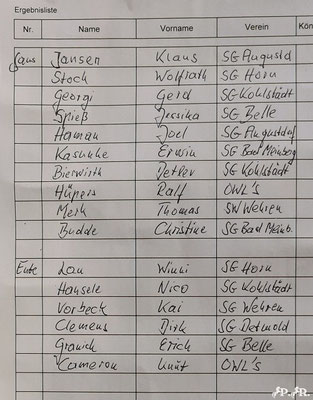 Ergebnisliste
Nr. Name Vorname Verein Kön
Gans Jansen Klaus SG Augustd
Stock Wolfrath SG Horn
Georgi Gerd SG Kohlstädt
Spieß Jessika SG Belle
Haman Joel SG Augustdof
Erwin SG Bad Meinberg
Bierwirth Detlev SG Kohlstädt
Hüpers Ralf OWL'S
Merk Thomas SW Wehren
Budde Christine SG Bad Meinb.
Ente Lau Winni SG Horn
Hansele Nico SG Kohlstädt
Vorbeck Kai SG Wehren
Clemens Dirk SG Detmold
Erich SG Belle
Cameron Knut OWL'S